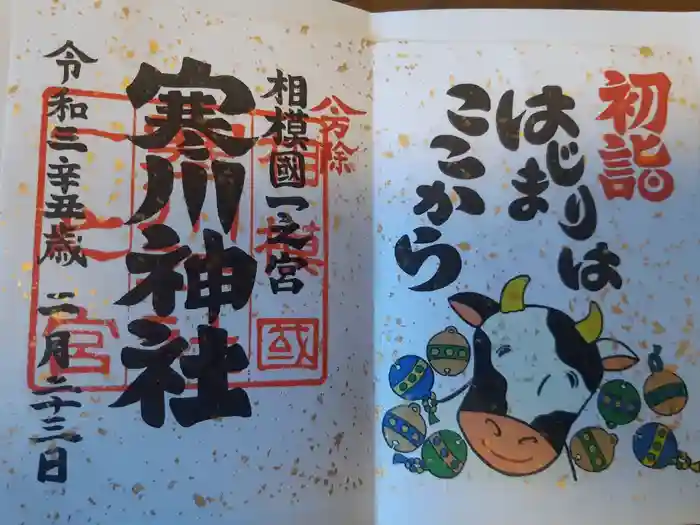 初詣
はじまりは
ここから
八方除
相模國一之宮
寒川神社
令和三辛丑歳 二月二十三日
相模國
一之宮